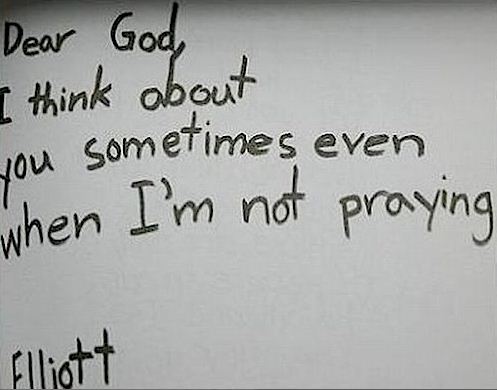 Dear God,
I think about
you sometimes even
when I'm not praying
Elliott